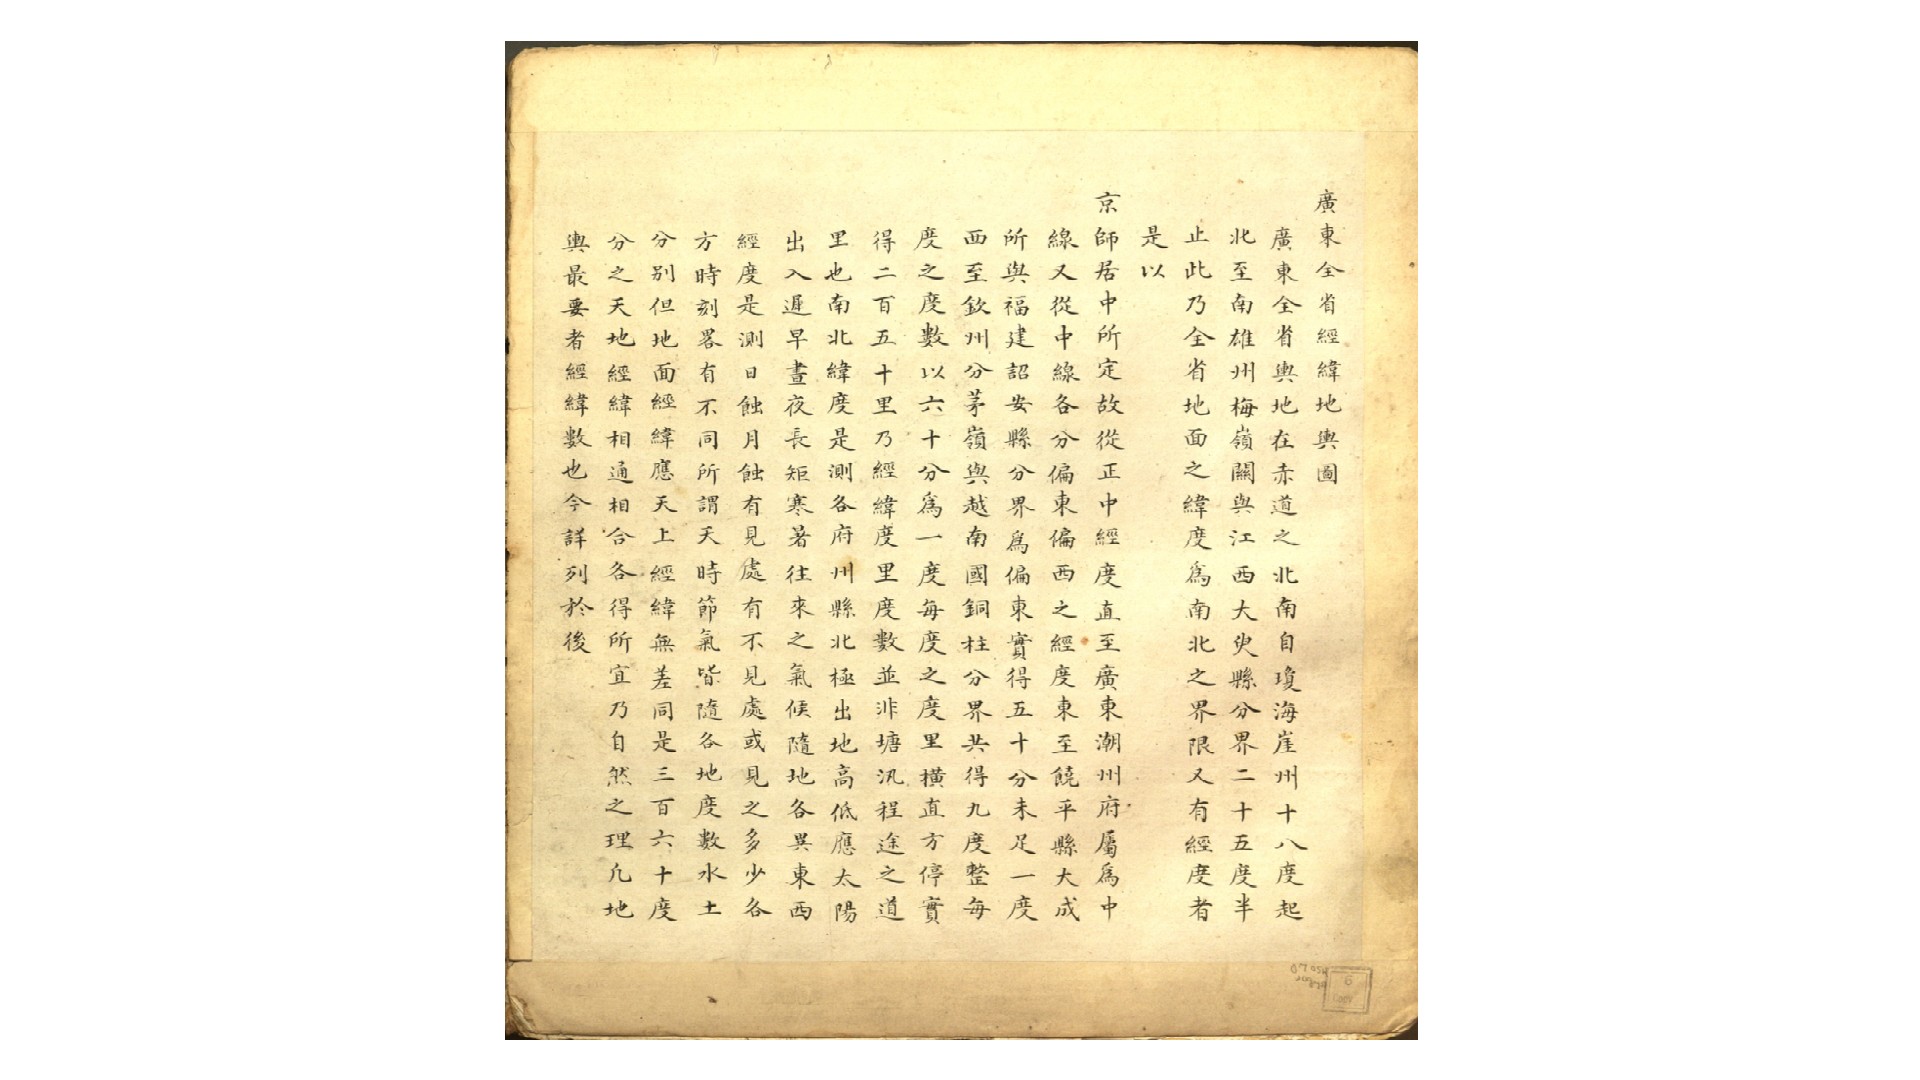 廣東全省經緯地輿圖
廣東全省輿地在赤道之北南自瓊海崖州十八度起
北至南雄州梅嶺關與江西大臾縣分界二十五度半
止此乃全省地面之緯度為南北之界限又有經度者
是以
京師居中所定故從正中經度直至廣東潮州府屬為中
線又從中線各分偏東偏西之經度東至饒平縣大成
所與福建詔安縣分界為偏東實得五十分未足一度
西至欽州分茅嶺與越南國銅柱分界共得九度整每
度之度數以六十分為一度每度之度里橫直方停實
得二百五十里乃經緯度里度數並非塘汛程途之道
里也南北緯度是測各府州縣北極出地高低應太陽
出入遲早晝夜長矩寒暑往來之氣候隨地各異東西
經度是測日蝕月蝕有見處有不見處或見之多少各
方時刻畧有不同所謂天時節氣皆隨各地度數水土
分別但地面經緯應天上經緯無差同是三百六十度
分之天地經緯相通相合各得所宜乃自然之理凡地
輿最要者經緯數也今詳列於後